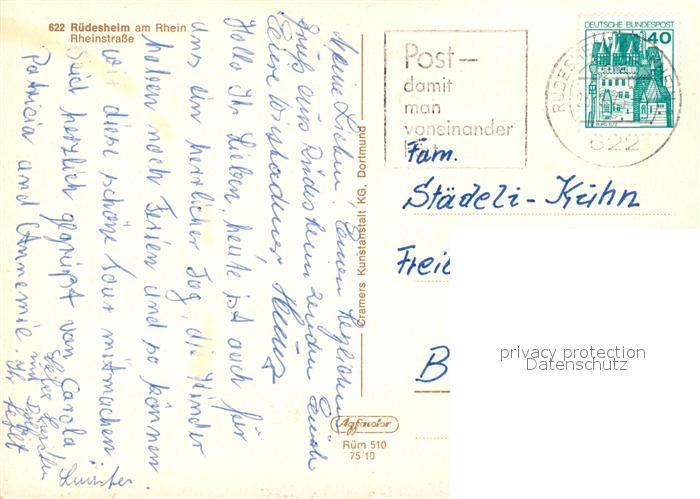 622 Rüdesheim am Rhein
Rheinstraße
Meine Lieben! Einen herzlichen
Gruß aus Rüdesheim senden Euch
Eure Wiesbadener
Hallo Ihr Lieben, heute ist auch für
uns ein herrlicher Tag, die Kinder
haben noch Ferien und so können
wir diese schöne Tour mitmachen.
Seid herzlich gegrüßt von Carola
Patricia und Annemie.
Ihr fehlt
Cramers Kunstanstalt KG, Dortmund
Agfacolor
Rüm 510
75/10
Post –
damit
man
voneinander
DEUTSCHE BUNDESPOST
40
622
Fam.
Städeli-Kühn
B
privacy protection
Datenschutz